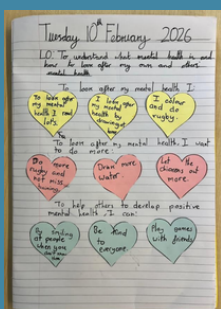 Tuesday 10th February 2026
L.O. To understand what mental health is and
how to look after my own and others
mental health
To look after my mental health I
To look after
my mental
health I read
lots.
I look
after my
mental health
by
drawing
I colour
and do
rugby.
To look after my mental health I want
to do more:
Do more
rugby and
not miss
training.
Drink more
water.
Let the
chickens out
more.
To help others to develop positive
mental health I can:
By smiling
at people
when you
Be kind
to
everyone.
Play games
with friends